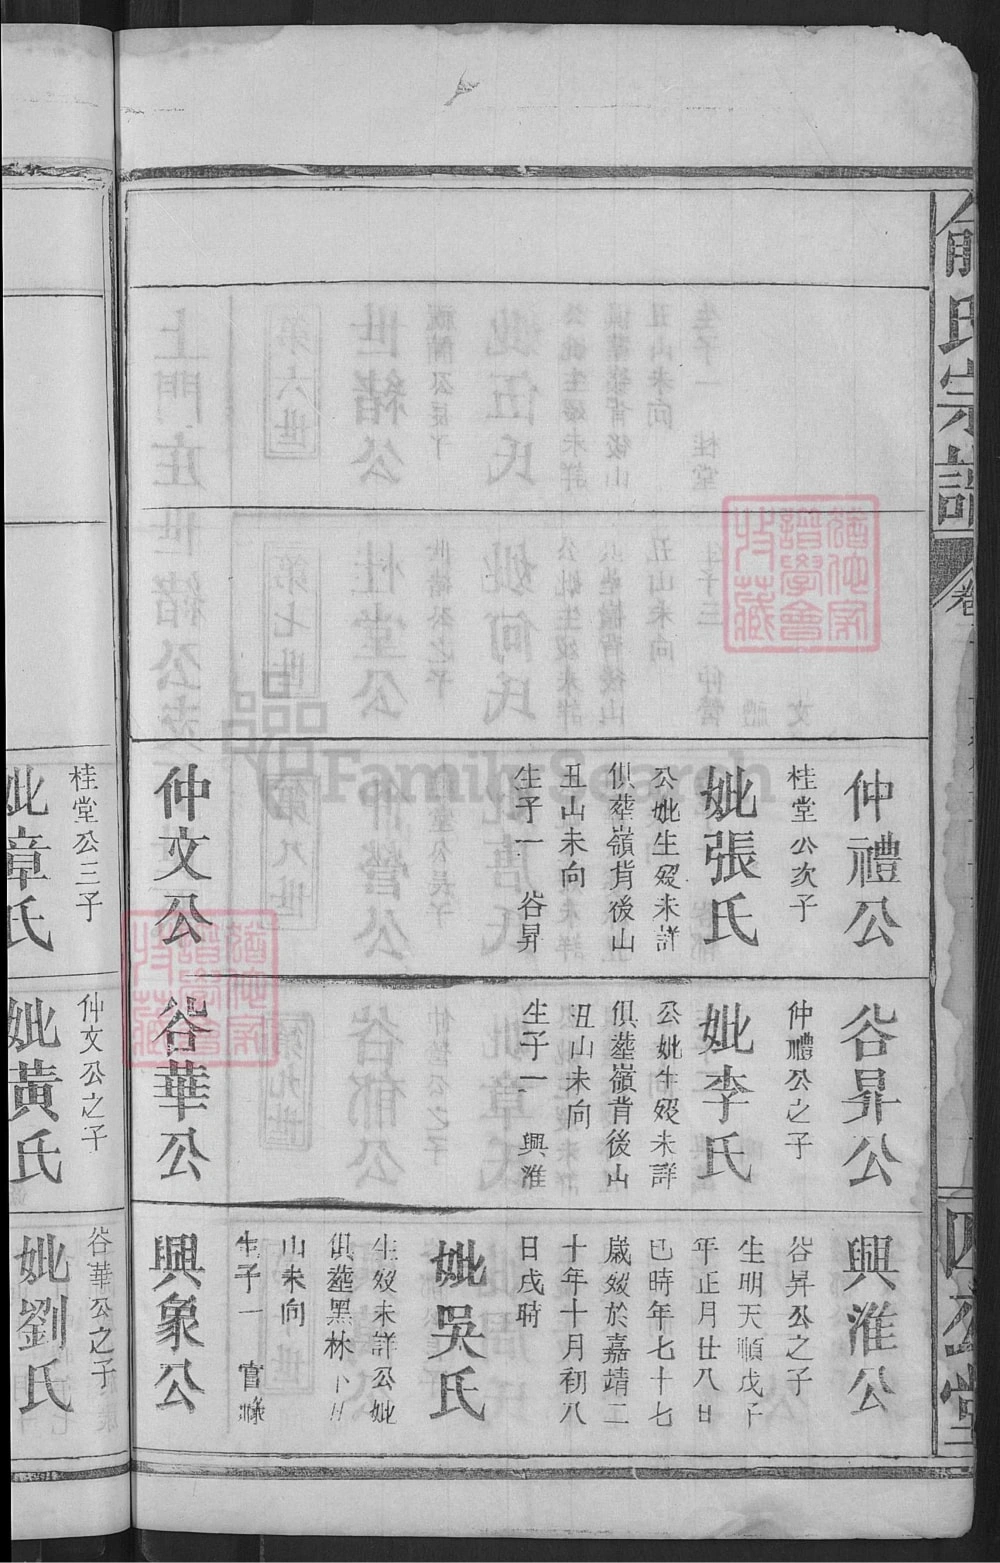 俞氏宗譜
卷
四公堂
仲禮公
桂堂公次子
妣張氏
公妣生歿未詳
俱葬嶺背後山
丑山未向
生子一 谷昇
仲文公
桂堂公三子
妣章氏
谷昇公
仲禮公之子
妣李氏
公妣生歿未詳
俱葬嶺背後山
丑山未向
生子一 興淮
谷華公
仲文公之子
妣黄氏
興淮公
谷昇公之子
生明天順戊子
年正月廿八日
巳時年七十七
歲歿於嘉靖二
十年十月初八
日戌時
妣吳氏
生歿未詳公妣
俱葬黑林下丑
山未向
生子一 官祿
興象公
谷華公之子
妣劉氏
FamilySearch